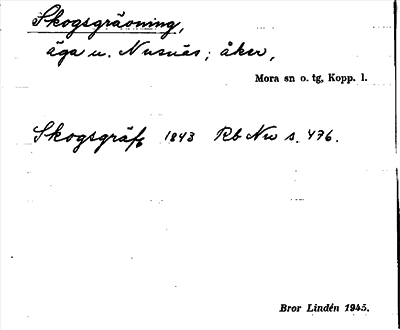 Skogsgräoning,
äga u. Nusnäs; åker,
Mora sn o. tg, Kopp. l.
Skogsgräf 1843 Rb Nu s. 476.
Bror Lindén 1945.